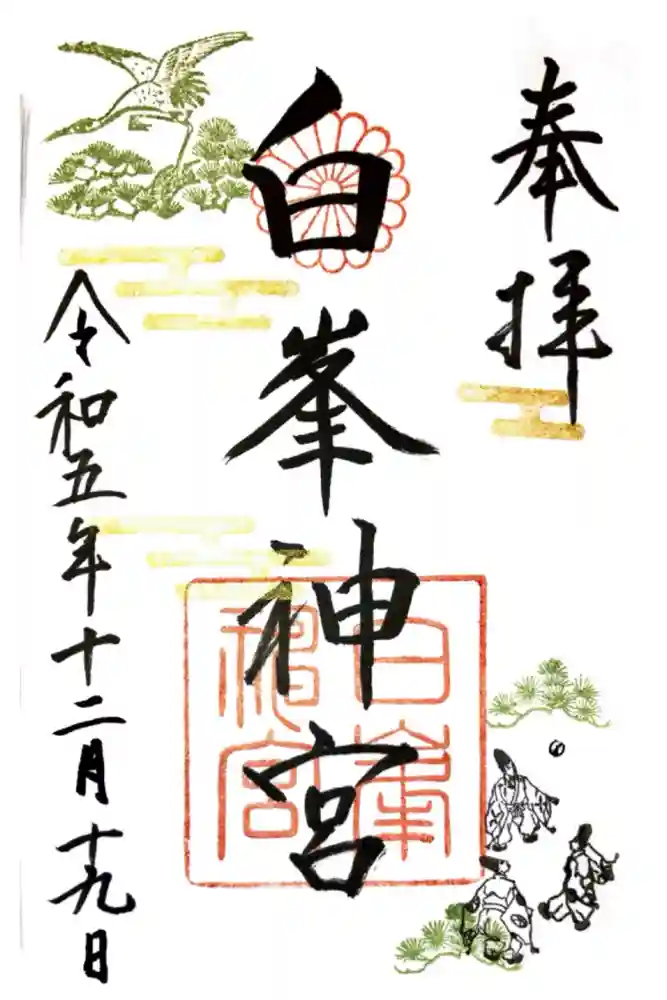 奉拝
白峯神宮
白峯神宮
令和五年十二月十九日